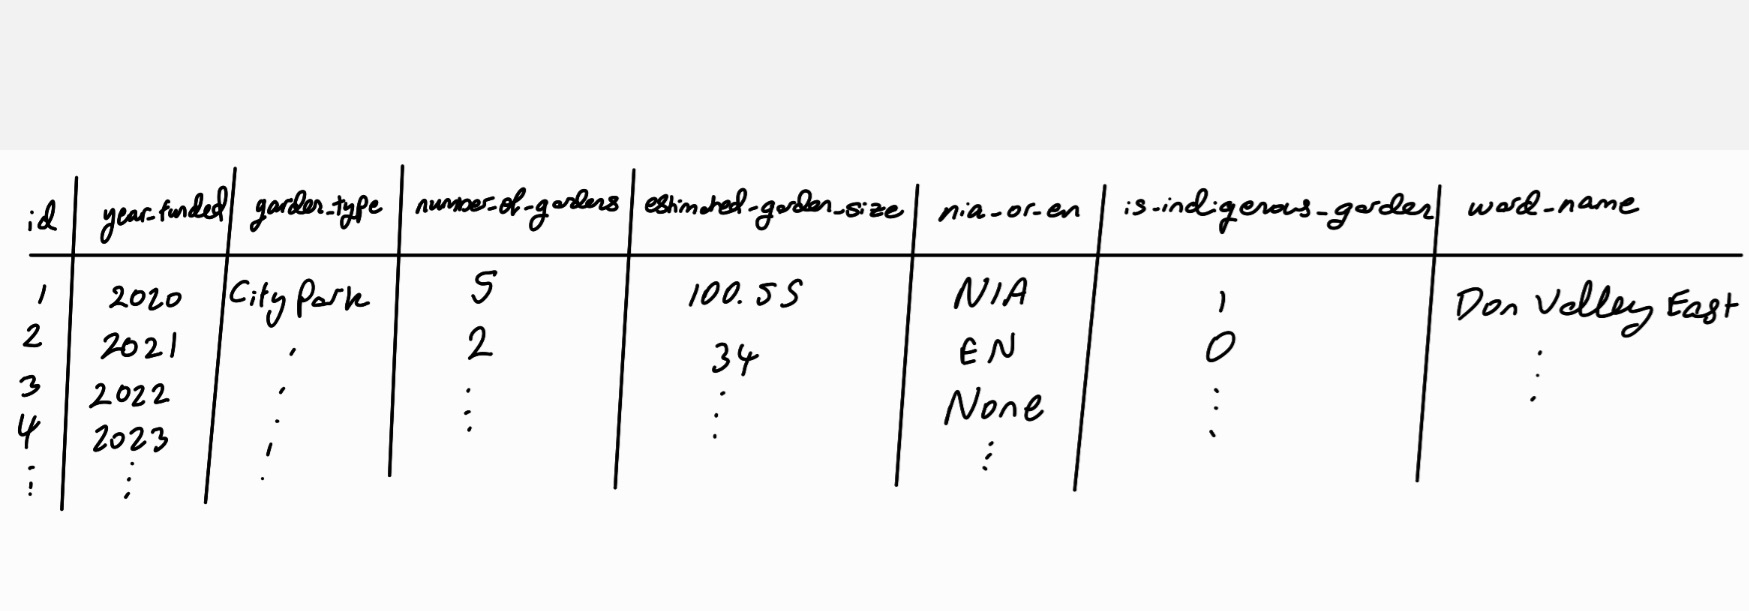 id year_funded garden_type number_of_gardens estimated_garden_size nia_or_en is_indigenous_garden ward_name
1 2020 City Park 5 100.55 NIA 1 Don Valley East
2 2021 2 34 EN 0
3 2022 None
4 2023